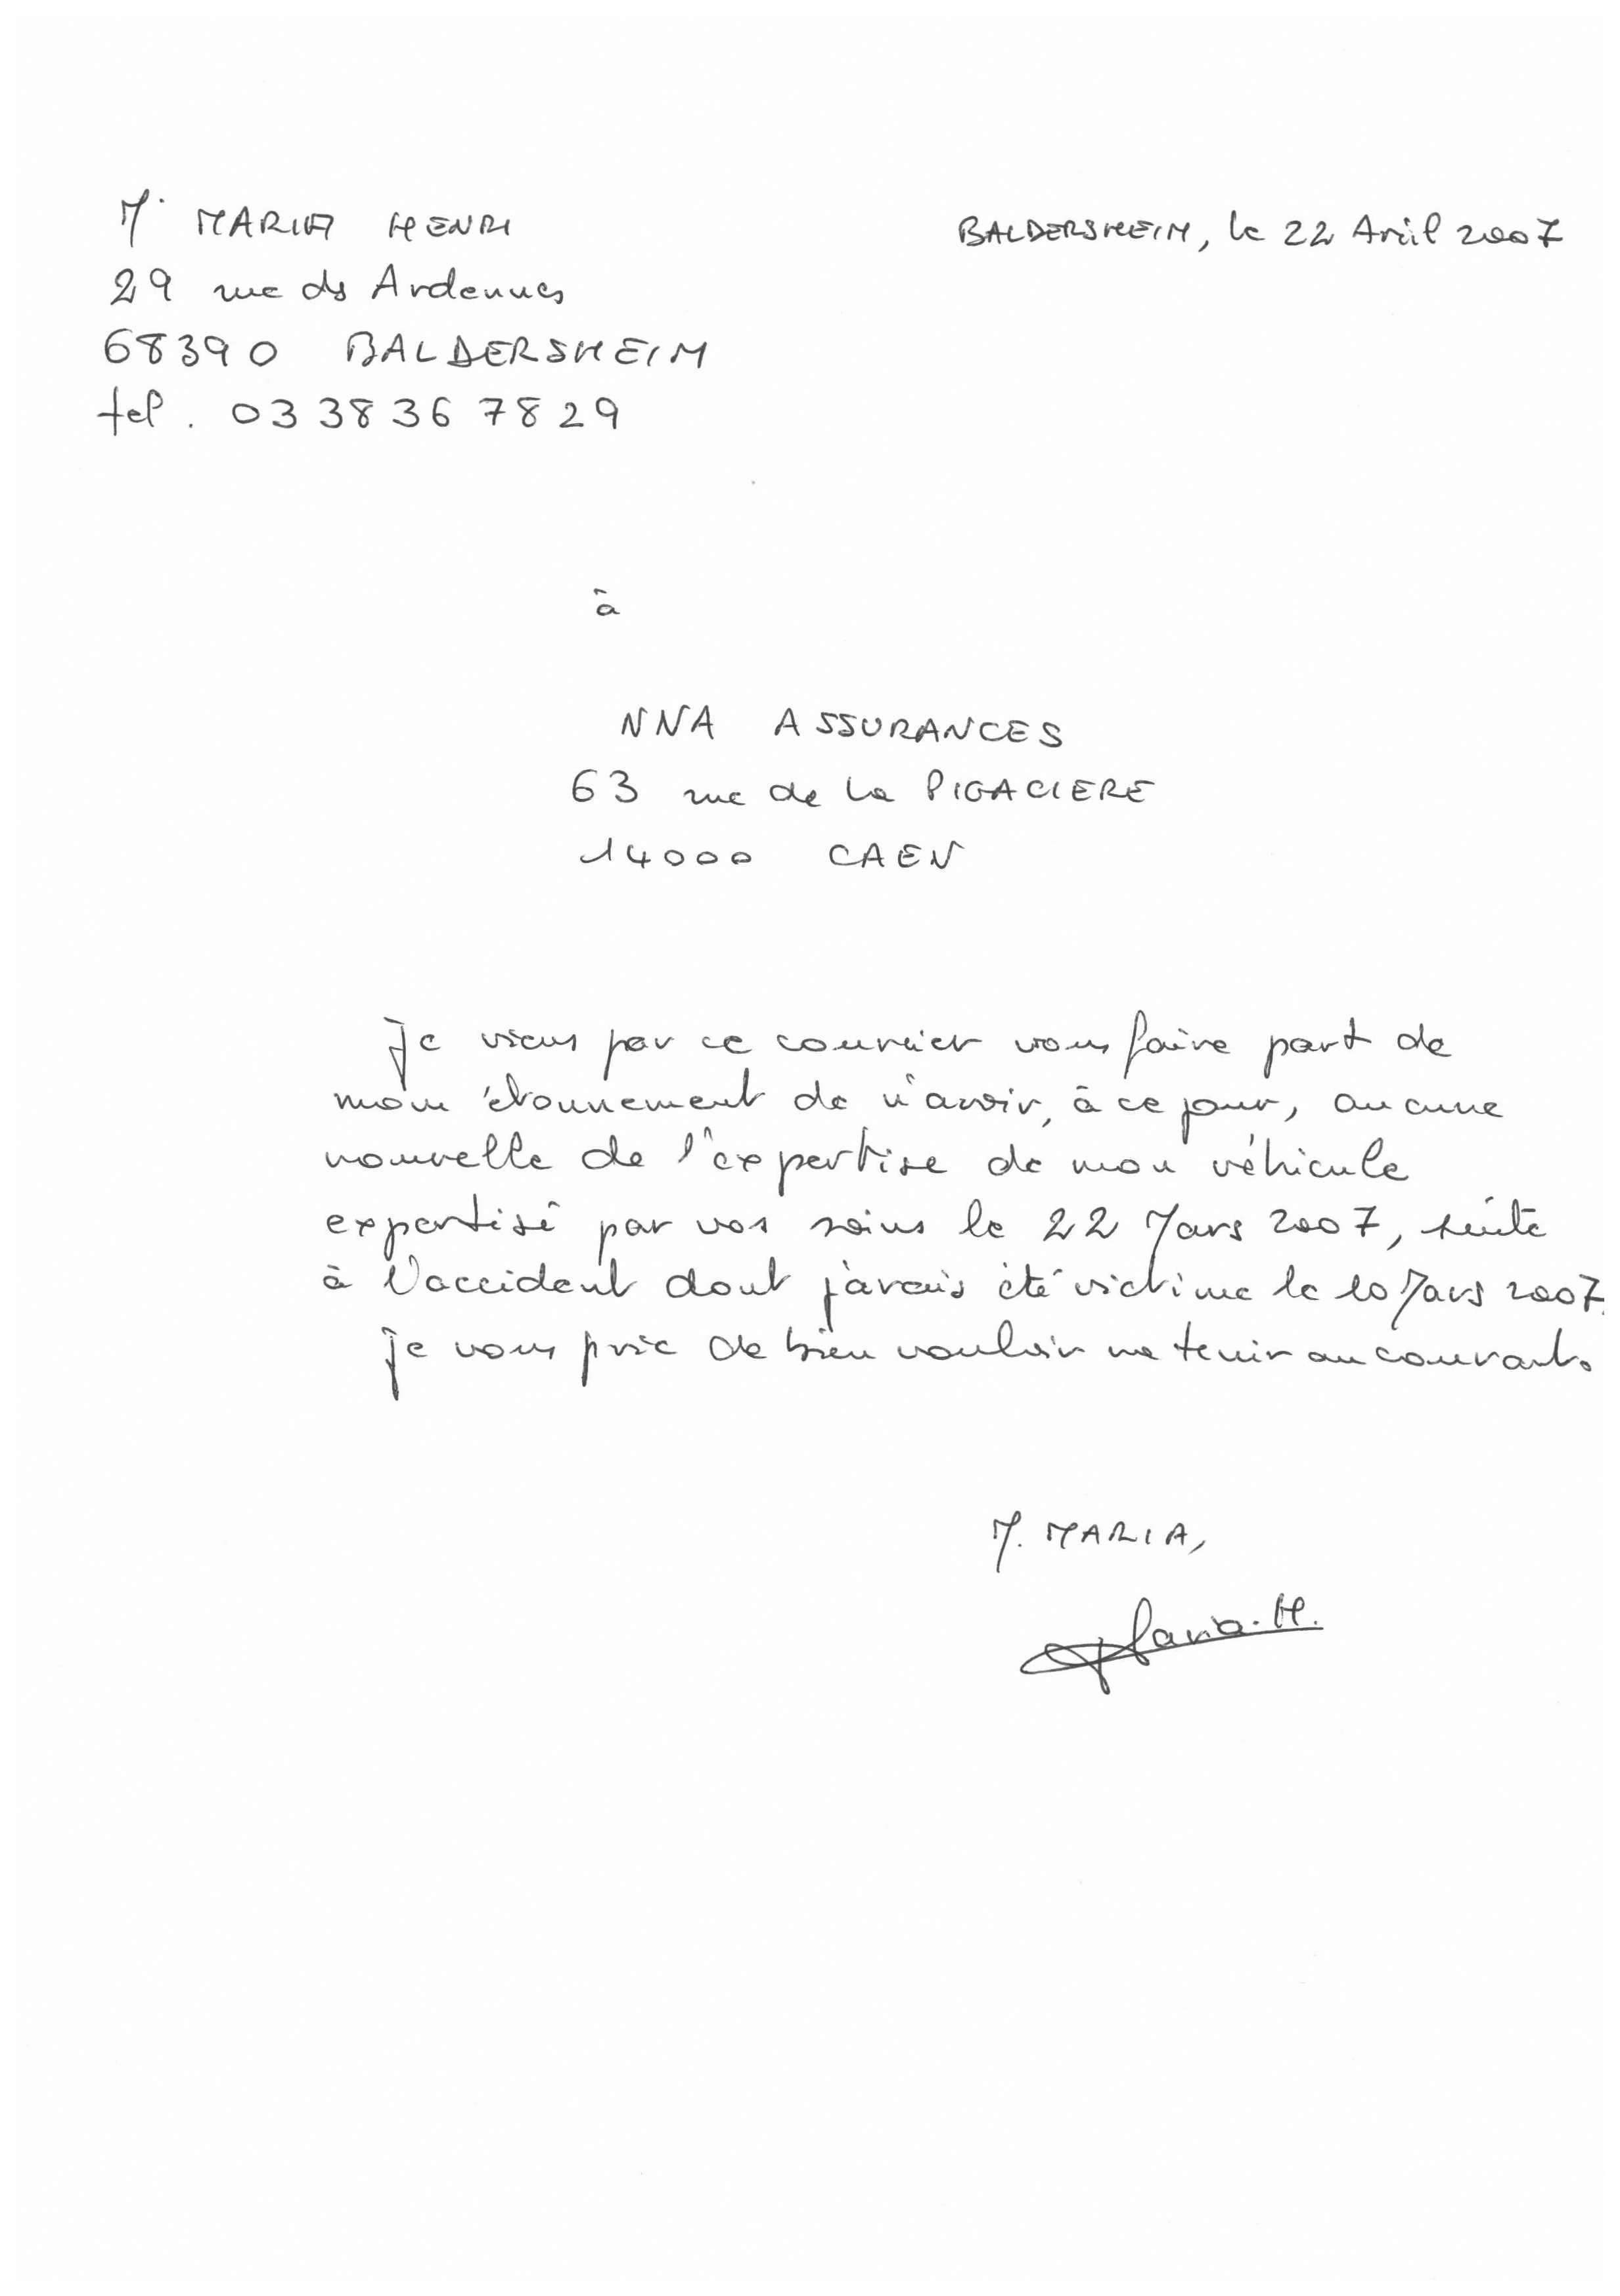 M. MARIA HENRI
BALDERSHEIM, le 22 Avril 2007
29 rue des Ardennes
68390 BALDERSHEIM
tel. 03 38 36 78 29
à
NNA ASSURANCES
63 rue de la PIGACIERE
14000 CAEN
Je viens par ce courrier vous faire part de
mon étonnement de n'avoir, à ce jour, aucune
nouvelle de l'expertise de mon véhicule
expertisé par vos soins le 22 Mars 2007, suite
à l'accident dont j'avais été victime le 10 Mars 2007.
Je vous prie de bien vouloir me tenir au courant.
M. MARIA,
Maria. H.